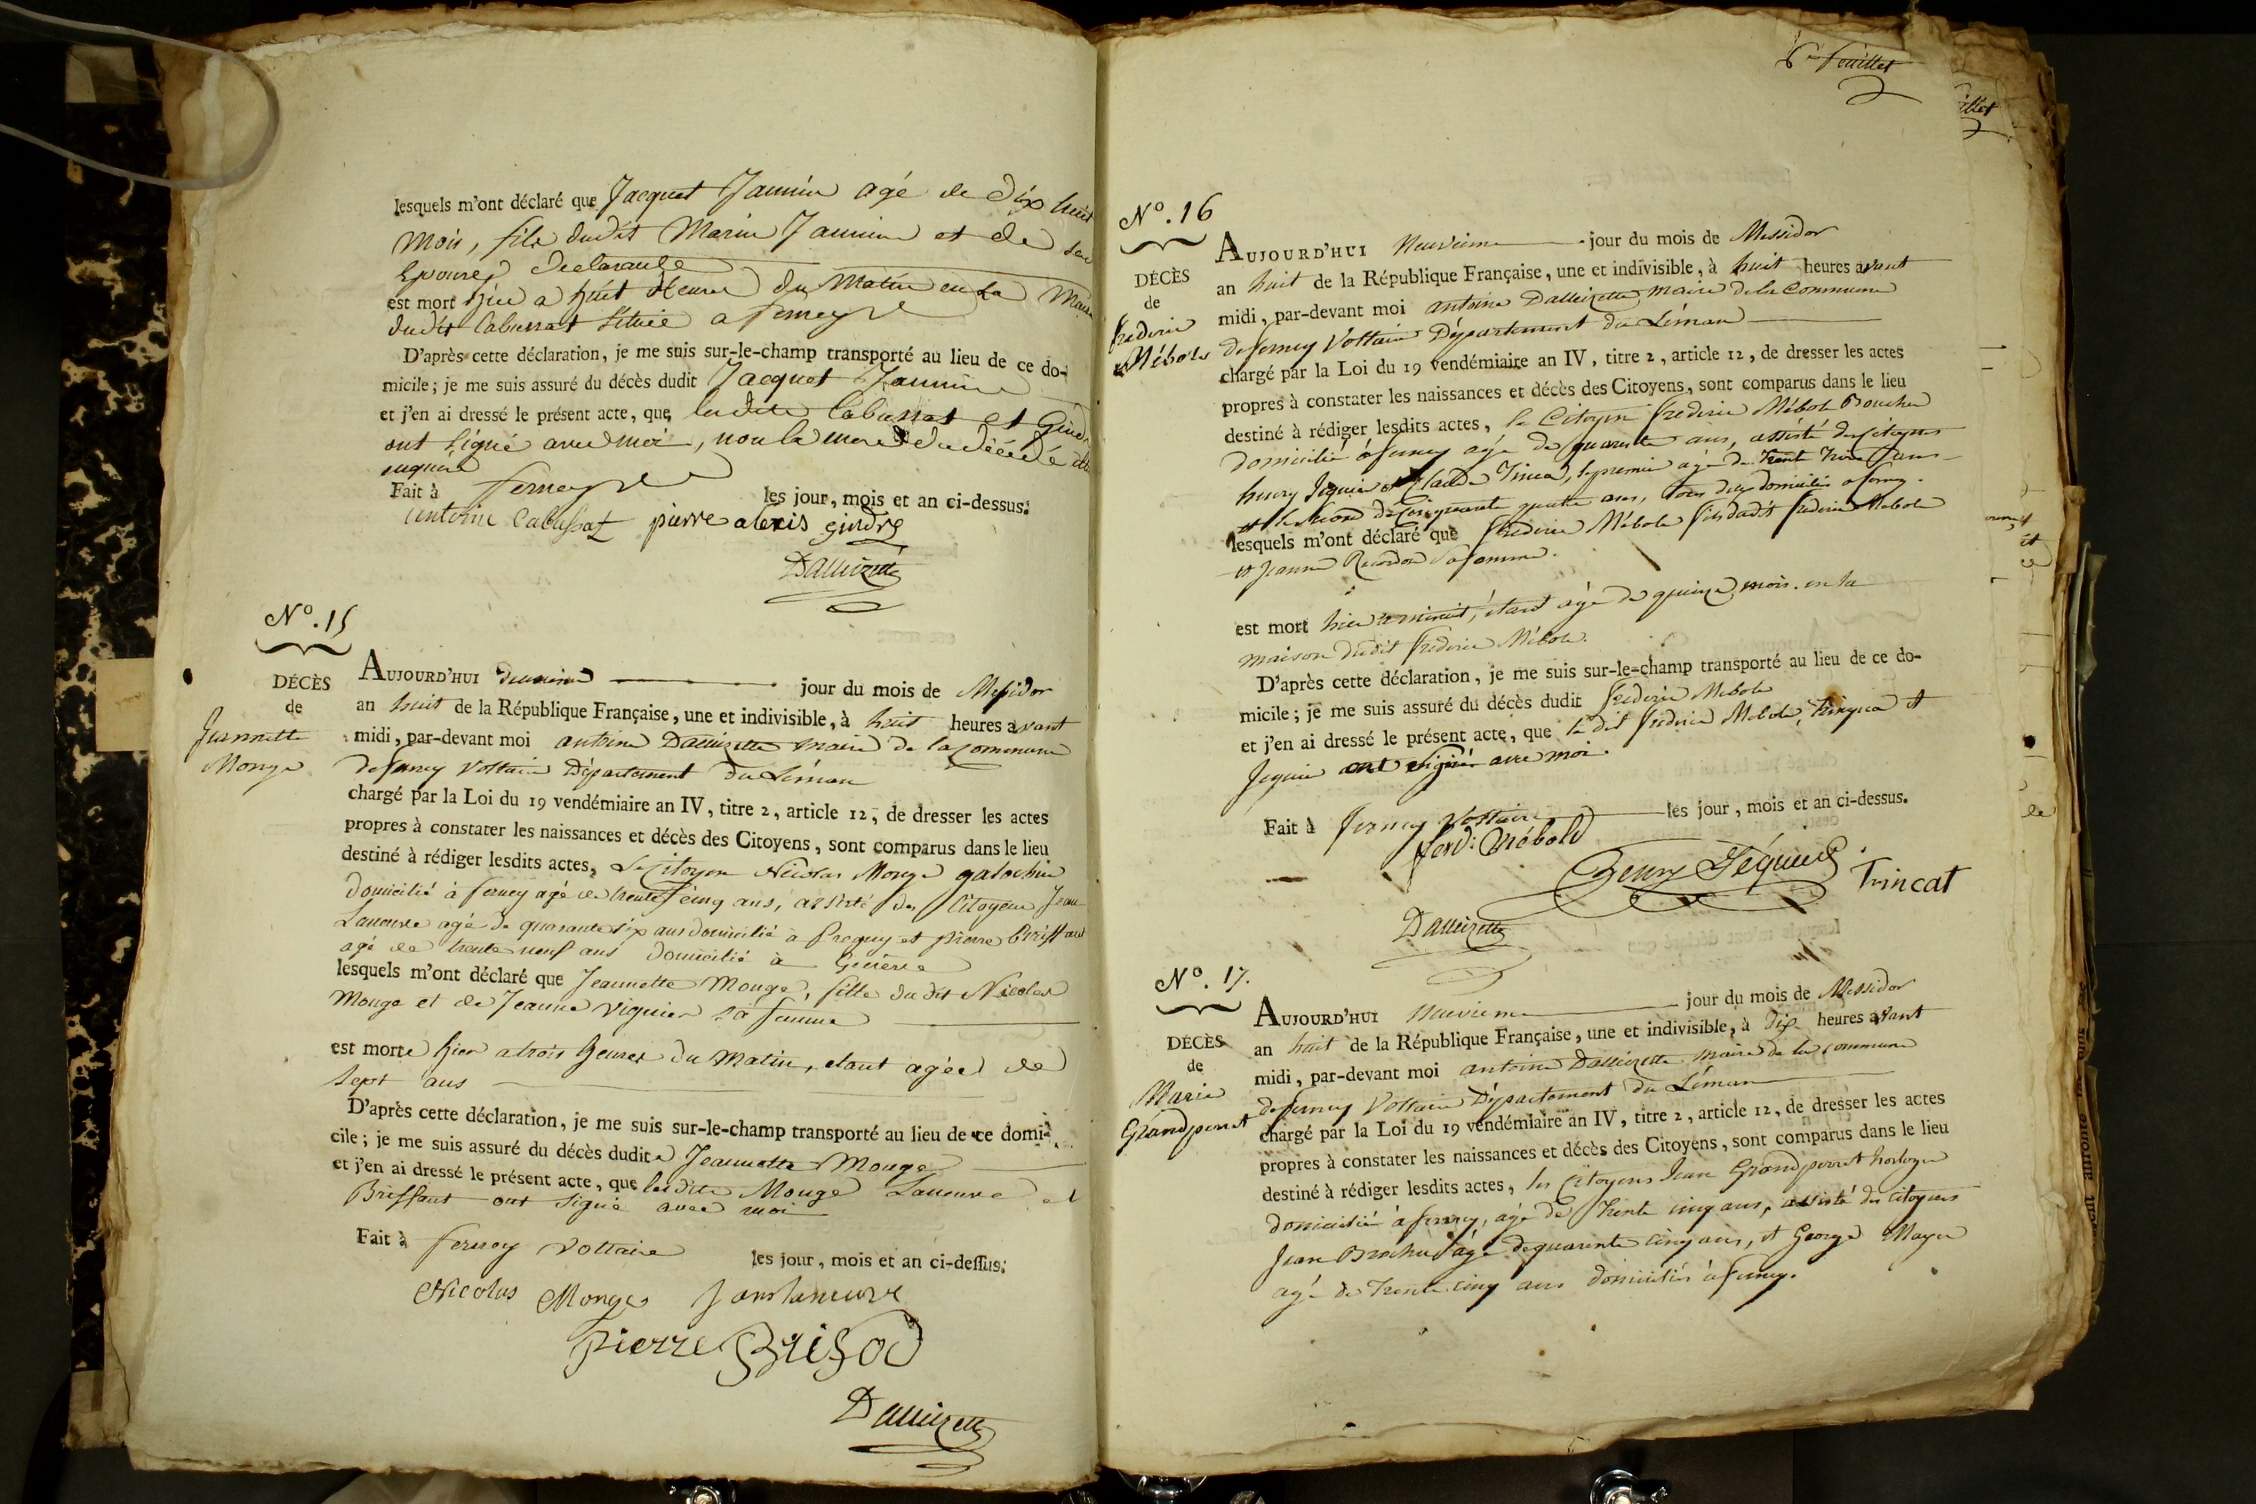 lesquels m'ont déclaré que Jacquet Jaunin agé de dix huit
mois, fils dudit Marin Jaunin et de sa
Epouse declarante
est mort hier a huit heures du Matin en la Maison
dudit Cabussat située a ferney
D'après cette déclaration, je me suis sur-le-champ transporté au lieu de ce do-
micile; je me suis assuré du décès dudit Jacquet Jaunin
et j'en ai dressé le présent acte, que lesdits Cabussat et Gindre
ont signé avec moi, non la mere du décédé de
requise
Fait à ferney les jour, mois et an ci-dessus.
antoine Cabussat pierre alexis gindre
Dallizette
N°. 15
DÉCÈS
de
Jeannette
Monge
AUJOURD'HUI deuxieme jour du mois de Messidor
an huit de la République Française, une et indivisible, à huit heures avant
midi, par-devant moi antoine Dallizette maire de la Commune
de ferney Voltaire Département du Léman
chargé par la Loi du 19 vendémiaire an IV, titre 2, article 12, de dresser les actes
propres à constater les naissances et décès des Citoyens, sont comparus dans le lieu
destiné à rédiger lesdits actes, le Citoyen Nicolas Monge galochier
domicilié à ferney agé de trente cinq ans, assisté des Citoyens Jean
Laneuve agé de quarante six ans domicilié à Pregny et pierre Brissaud
agé de trente neuf ans domicilié à Genève
lesquels m'ont déclaré que Jeannette Monge, fille dudit Nicolas
Monge et de Jeanne Viguier sa femme
est morte hier a trois heures du Matin, etant agée de
Sept ans
D'après cette déclaration, je me suis sur-le-champ transporté au lieu de ce domi-
cile; je me suis assuré du décès dudite Jeannette Monge
et j'en ai dressé le présent acte, que lesdits Monge Laneuve et
Brissaut ont signé avec moi
Fait à ferney Voltaire les jour, mois et an ci-dessus.
Nicolas Monges Jean laneuve
pierre Brisod
Dallizette
6e feuillet
illet
N°. 16
DÉCÈS
de
frederic
Mébold
AUJOURD'HUI Neuvieme jour du mois de Messidor
an huit de la République Française, une et indivisible, à huit heures avant
midi, par-devant moi antoine Dallizette, maire de la Commune
de ferney Voltaire Département du Léman
chargé par la Loi du 19 vendémiaire an IV, titre 2, article 12, de dresser les actes
propres à constater les naissances et décès des Citoyens, sont comparus dans le lieu
destiné à rédiger lesdits actes, le Citoyen frederic Mébold Boucher
domicilié à ferney agé de quarante ans, assisté des citoyens
henry Jequier et Claude Trinca, le premier agé de trente trois ans
et le second de Cinquante quatre ans, tous deux domiciliés a ferney.
lesquels m'ont déclaré que frederic Mébold fils dudit frederic Mebold
et Jeanne Recordon sa femme.
est mort hier a minuit, étant agé de quinze mois. en la
maison dudit frederic Mébold.
D'après cette déclaration, je me suis sur-le-champ transporté au lieu de ce do-
micile; je me suis assuré du décès dudit frederic Mebold
et j'en ai dressé le présent acte, que le dit frederic Mebold, Trinca et
Jequier ont signés avec moi.
Fait à ferney Voltaire les jour, mois et an ci-dessus.
ferd: Mébold
Henry Jéquier Trincat
Dallizette
N°. 17.
DÉCÈS
de
Marie
Grandperret
AUJOURD'HUI Neuvieme jour du mois de Messidor
an huit de la République Française, une et indivisible, à dix heures avant
midi, par-devant moi antoine Dallizette maire de la Commune
de ferney Voltaire Département du Léman
chargé par la Loi du 19 vendémiaire an IV, titre 2, article 12, de dresser les actes
propres à constater les naissances et décès des Citoyens, sont comparus dans le lieu
destiné à rédiger lesdits actes, les Citoyens Jean Grandperret horloger
domicilié à ferney, agé de Trente cinq ans, assisté des citoyens
Jean Brochu agé de quarante cinq ans, et George Mayer
agé de trente cinq ans domiciliés à ferney.